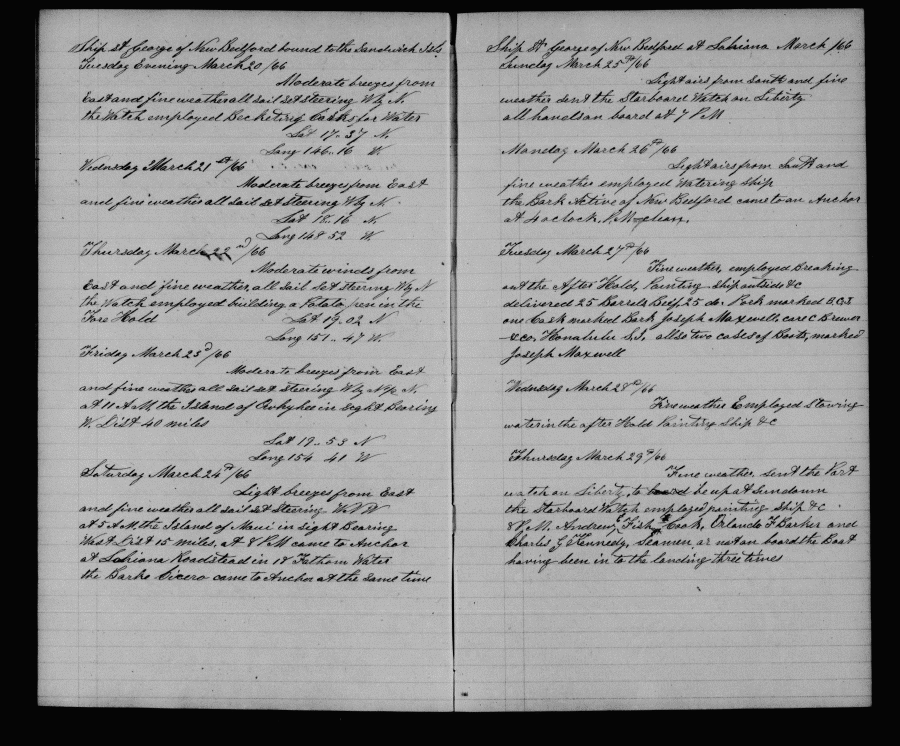 Ship St George of New Bedford bound to the Sandwich Isls
Tuesday Evening March 20/66
Moderate breezes from
East and fine weather all sail set steering W by N.
the Watch employed Becketing Casks for Water
Lat 17..37 N
Long 146..16 W
Wednsday March 21st/66
Moderate breezes from East
and fine weather all sail set steering W by N.
Lat 18..16 N
Long 148 52 W.
Thursday March 22nd/66
Moderate winds from
East and fine weather, all sail set steering W by N
the Watch employed building a Potato pen in the
Fore Hold Lat 19..02 N
Long 151..47 W.
Friday March 23d/66
Moderate breezes from East
and fine weather all sail set steering W by N 1/2 N.
at 11 A.M. the Island of Owhyhee in sight Bearing
W. Dist 40 miles
Lat 19..53 N
Long 154 41 W
Saturday March 24th/66
Light breezes from East
and fine weather all sail set Steering W.N.W
at 5 A.M. the Island of Maui in sight Bearing
West Dist 15 miles, at 8 P.M came to Anchor
at Lahiana Roadstead in 18 Fathom Water
the Barke Cicero came to Anchor at the same time
Ship St George of New Bedford at Lahiana March /66
Sunday March 25th/66
Light airs from south and fine
weather sent the Starboard Watch on Liberty
all hands on board at 7 P.M
Monday March 26th/66
Light airs from South and
fine weather employed Watering Ship
the Bark Active of New Bedford came to an Anchor
at 4 oclock P.M. clean.
Tuesday March 27th/66
Fine weather, employed Breaking
out the After Hold, Painting ship outside &c
delivered 25 Barrels Beef 25 do. Pork marked
one Cask marked Bark Joseph Maxwell, care C Brewer
& co, Honolulu S.I. allso two cases of Boots, marked
Joseph Maxwell
Wednsday March 28th/66
Fine weather Employed Stowing
water in the after Hold Painting Ship &c
Thursday March 29th/66
Fine weather, sent the Port
watch on Liberty, to board be up at sundown
the Starboard Watch employed painting ship &c
8 P.M. Andrew Fish Cook, Orlando F Barker and
Charles Kennedy, Seamen ar not on board the Boat
having been in to the landing three times